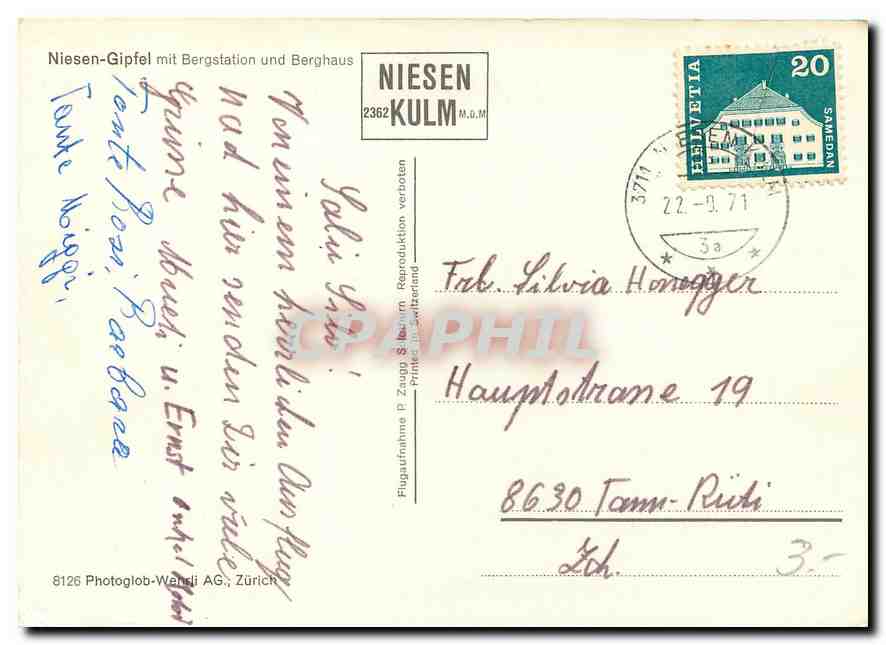 Niesen-Gipfel mit Bergstation und Berghaus
NIESEN
2362 KULM M.ü.M
HELVETIA
20
SAMEDAN
3711
22.-9.71
3a
Salü Silvi!
Von einem herrlichen Ausflug
nach hier senden Dir viele
Grüsse Mueti u. Ernst onkel
Tante Rosi, Barbara
Tante
Flugaufnahme P. Zaugg Solothurn Reproduktion verboten
Printed in Switzerland
CPAPHIL
Frl. Silvia Honegger
Hauptstrasse 19
8630 Tann-Rüti
Zch.
3.-
8126 Photoglob-Wehrli AG., Zürich